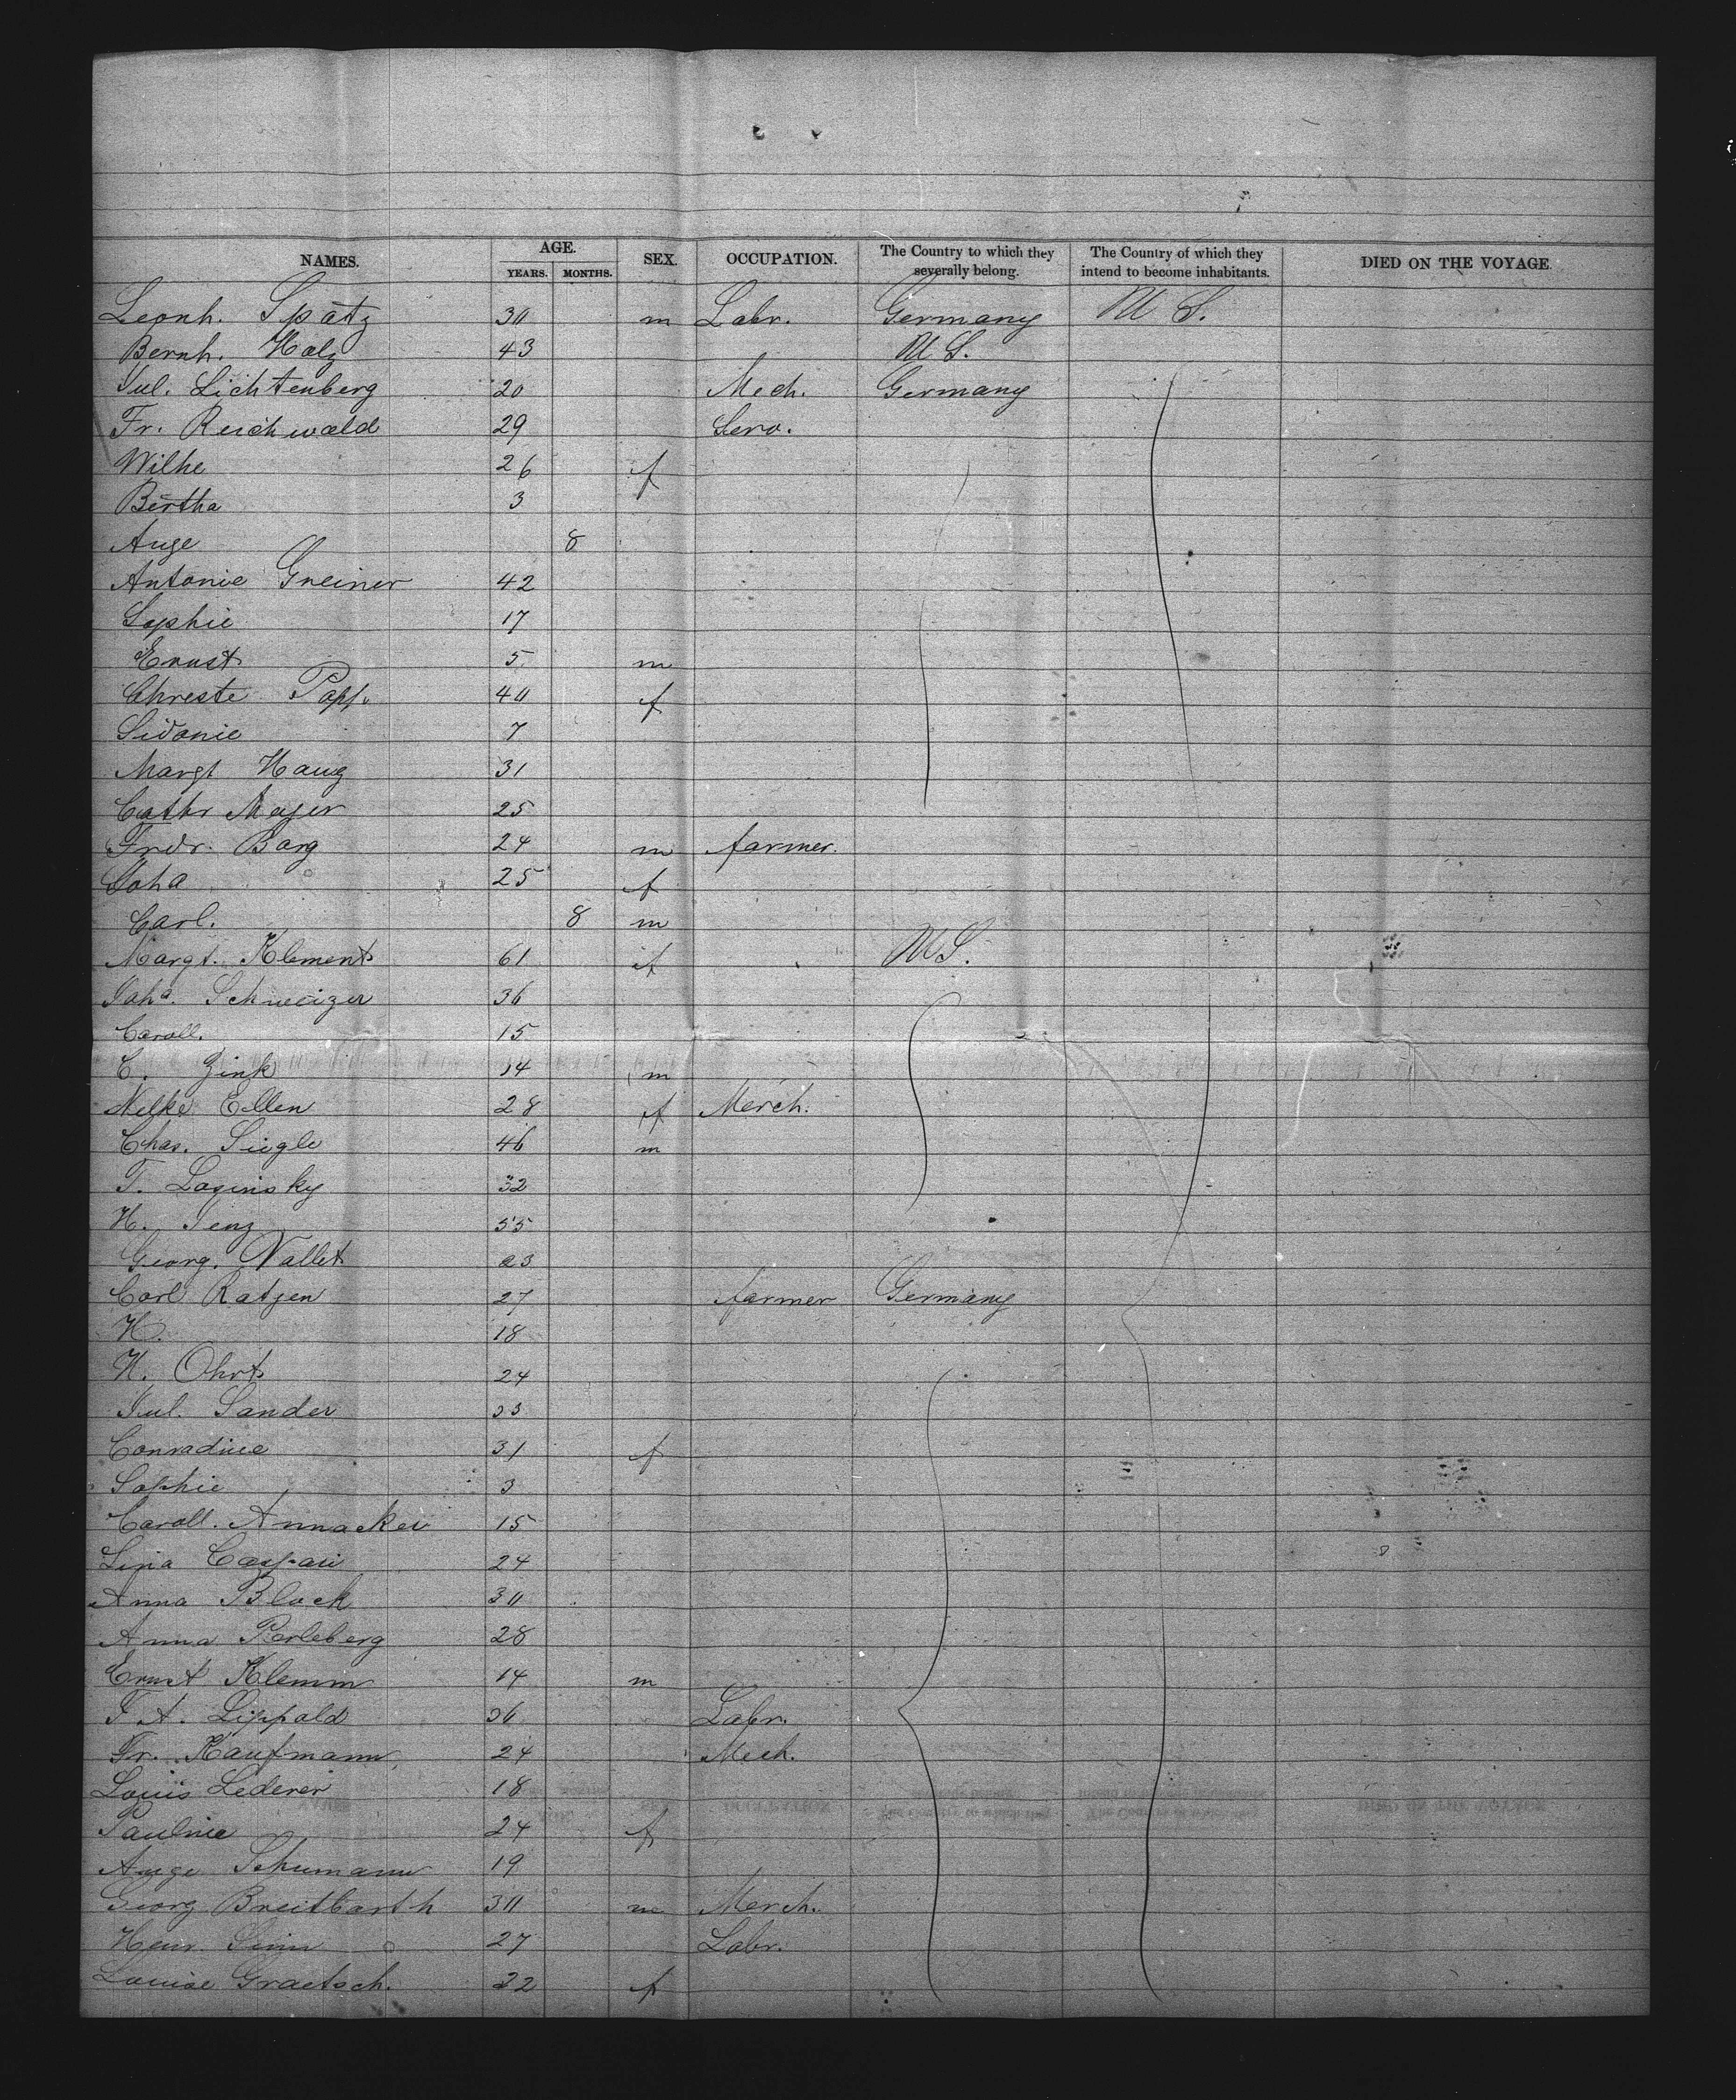 NAMES. AGE. YEARS. MONTHS. SEX. OCCUPATION. The Country to which they severally belong. The Country of which they intend to become inhabitants. DIED ON THE VOYAGE.
Leonh. Spätz 30 m Labr. Germany U S.
Bernh. Holz 43 U S.
Jul. Lichtenberg 20 Mech. Germany
Fr. Reichwald 29 Serv.
Wilhe 26 f
Bertha 3
Auge 8
Antonie Greiner 42
Sophie 17
Ernst 5 m
Chreste Popp. 40 f
Sidonie 7
Margt Haug 31
Cathr Mayer 25
Fridr. Borg 24 m farmer.
Joha 25 f
Carl. 8 m
Margt. Klement 61 f U S.
Joha. Schweizer 36
Caroll. 15
C. Zink 14 m
Nelke Ellen 28 f Merch.
Chas. Siegle 46 m
T. Loginsky 32
H. Jenz 55
Georg. Vallet 23
Carl Ratjen 27 farmer Germany
H. 18
H. Ohrt 24
Jul. Sander 33
Conradine 31 f
Sophie 3
Caroll. Annacker 15
Lina Caspari 24
Anna Block 30
Anna Perleberg 28
Ernst Klemm 14 m
F A. Lippold 36 Labr.
Fr. Kaufmann 24 Mech.
Louis Lederer 18
Pauline 24 f
Auge Schumann 19
Georg Breitbarth 30 m Merch.
Heinr. 27 Labr.
Louise Graetsch. 22 f